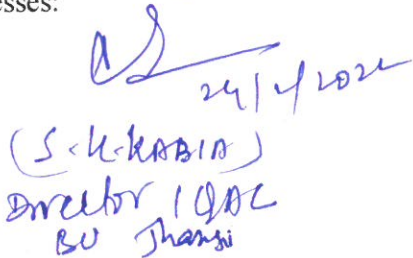 esses:
(S.K.KABIA)
Director IQAC
BU Jhansi